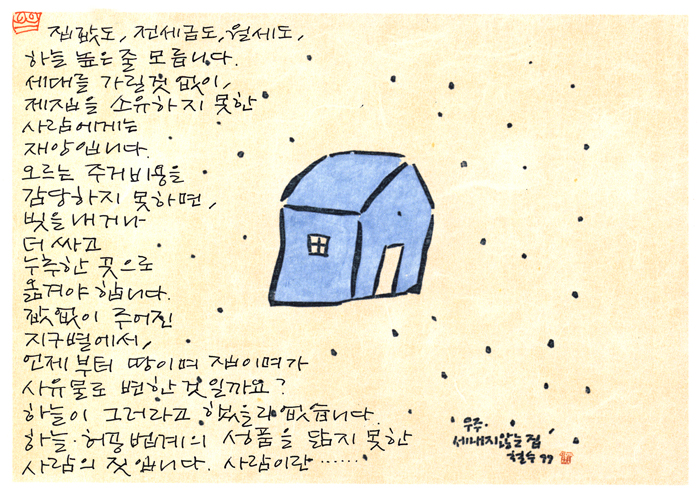 집값도, 전세금도, 월세도,
하늘 높은 줄 모릅니다.
세대를 가릴것 없이,
제집을 소유하지 못한
사람에게는
재앙입니다.
오르는 주거비용을
감당하지 못하면,
빚을 내거나
더 싸고
누추한 곳으로
옮겨야 합니다.
값없이 주어진
지구별에서,
언제부터 땅이며 집이며가
사유물로 변한것일까요?
하늘이 그러라고 했을리 없습니다.
하늘·허공법계의 성품을 닮지 못한
사람의 짓입니다. 사람이란 ……
우주·
세내지않는 집
철수 99